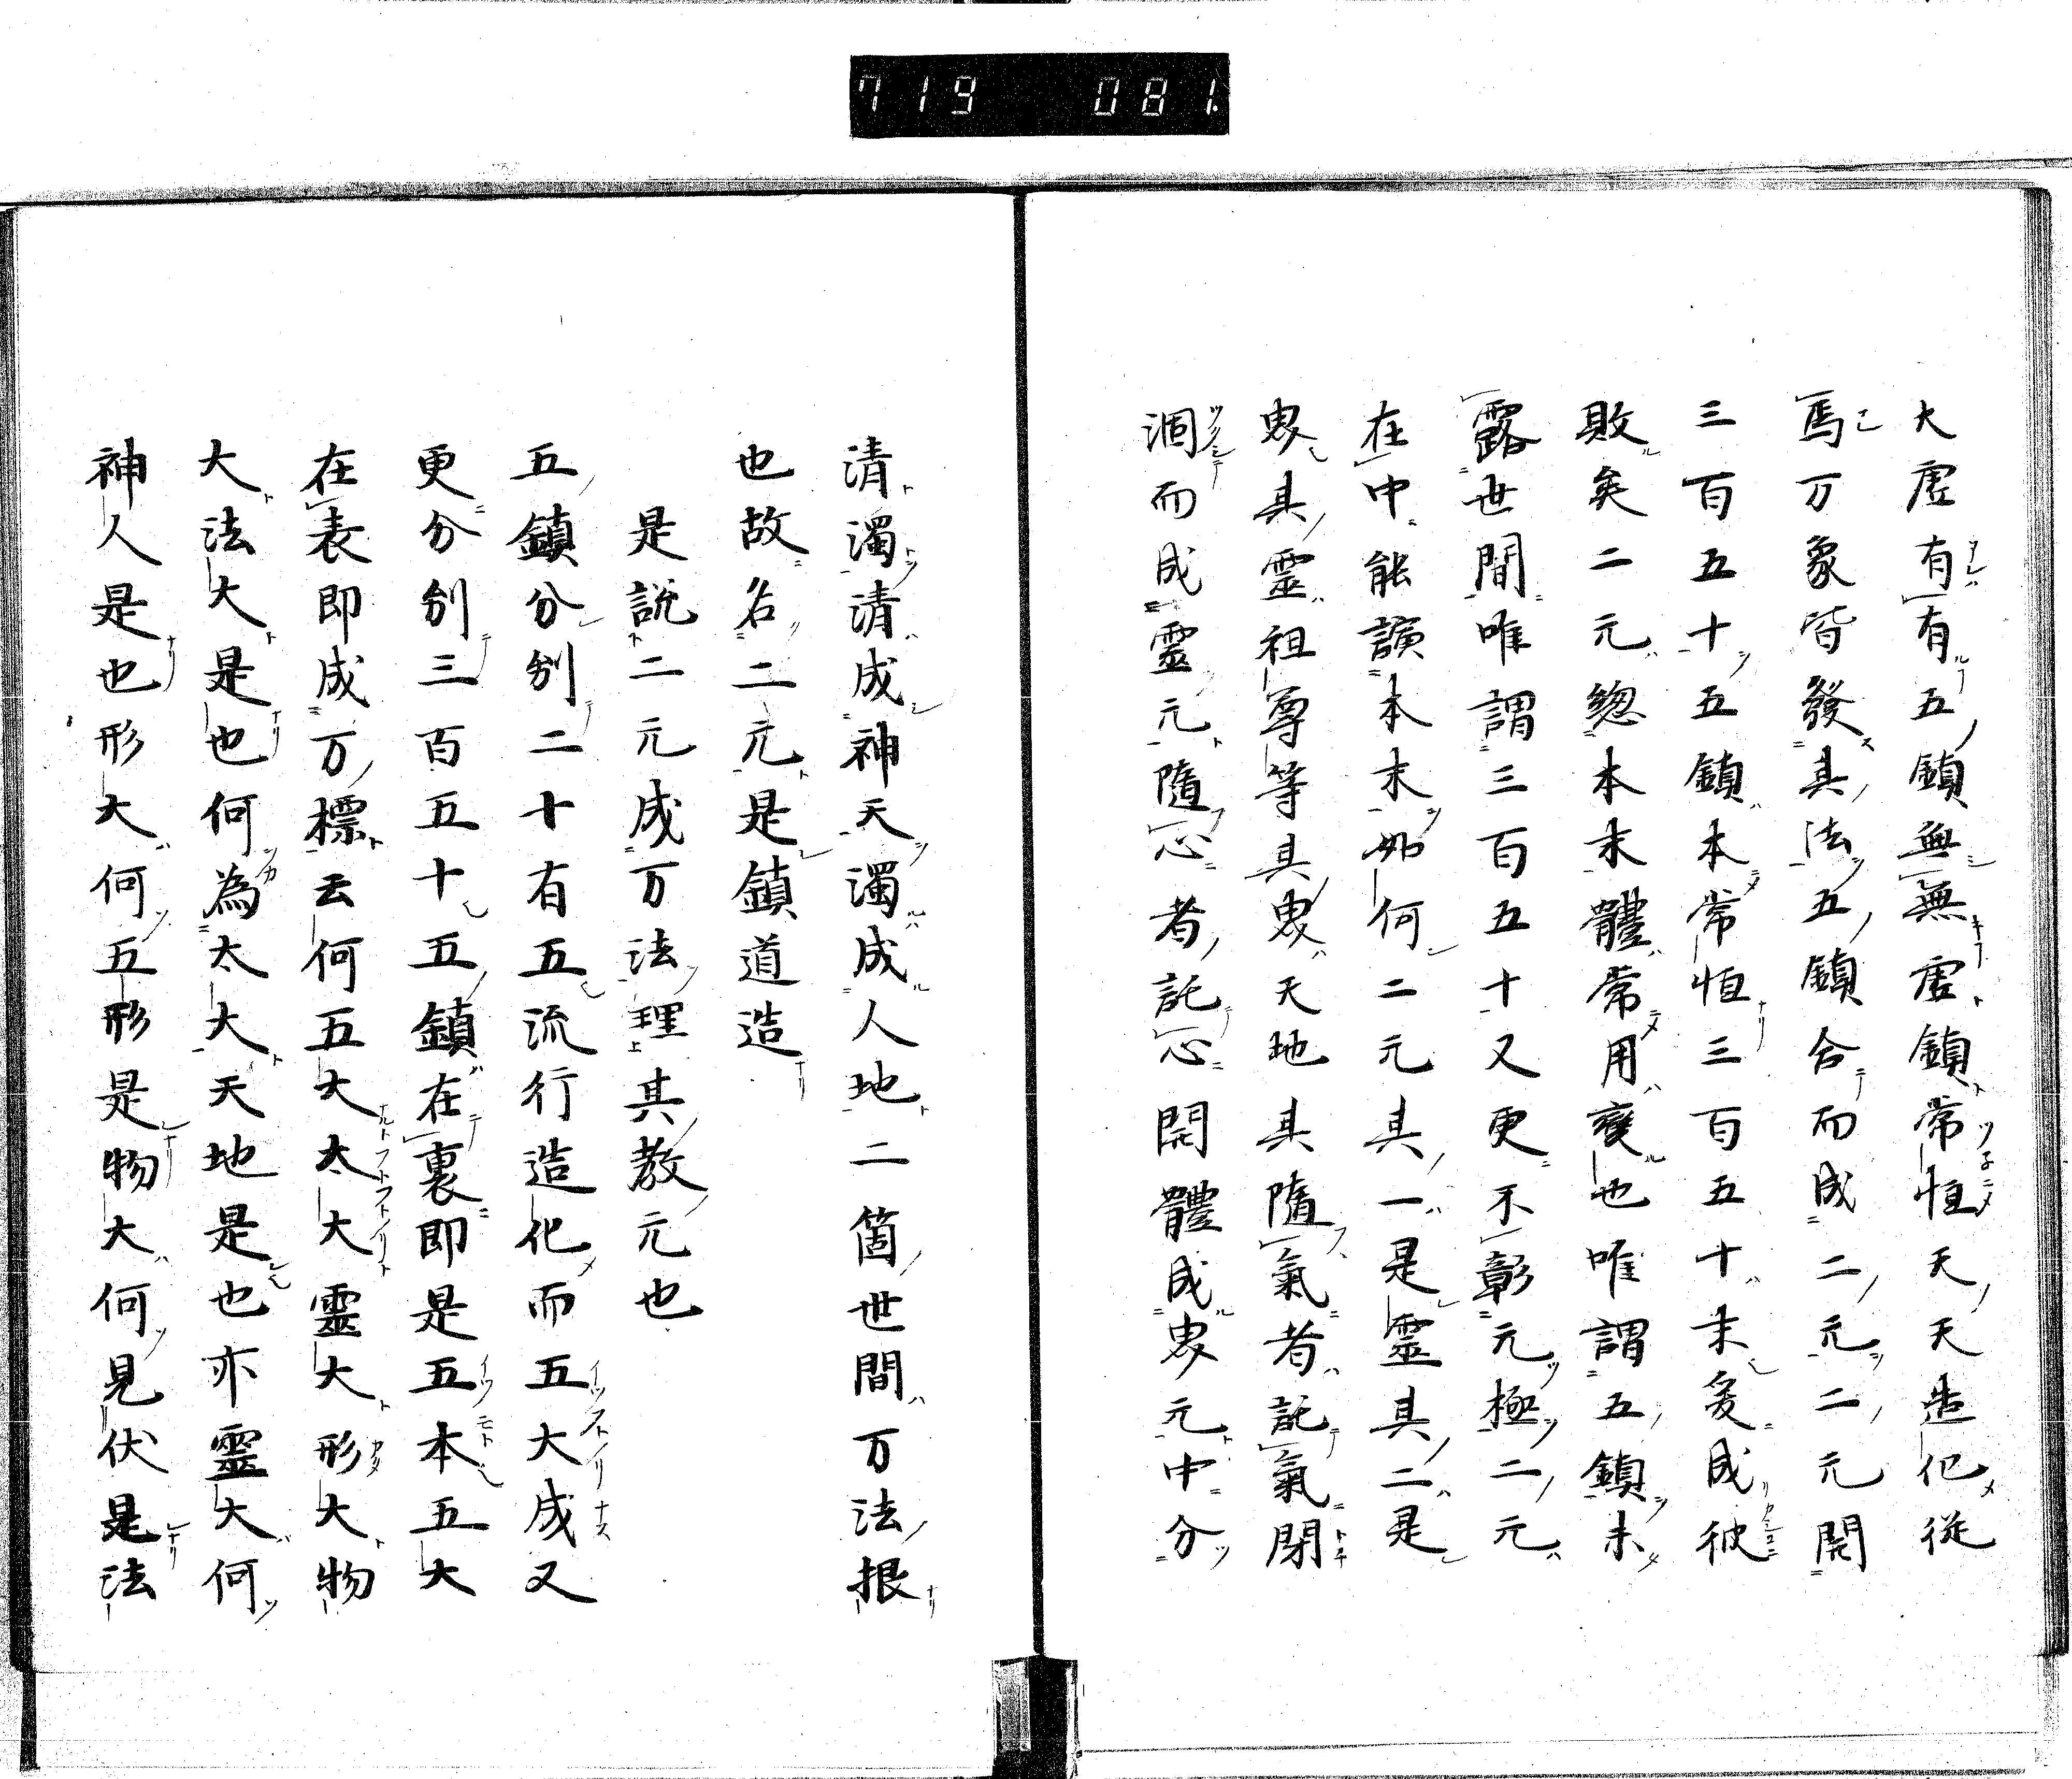 719 081
大虚有有五鎮無無虚鎮常恒天天造化従
焉万象皆發其法五鎮合而成二元二元開
三百五十五鎮本常恒三百五十末爰成彼
敗矣二元總本末體常用變也唯謂五鎮未
露世間唯謂三百五十又更不彰元極二元
在中能讀本末如何二元具一是靈具二是
具靈祖尊等具天地其隨氣者託氣閉
涸而成靈元隨心者託心開體成元中分
清濁清成神天濁成人地二箇世間万法根
也故名二元是鎮道造
是說二元成万法理其教元也
五鎮分別二十有五流行造化而五大成又
更分別三百五十五鎮在裏即是五本五大
在表即成万標云何五大太大靈大形大物
大法大是也何為太大天地是也亦靈大何
神人是也形大何五形是物大何見伏是法